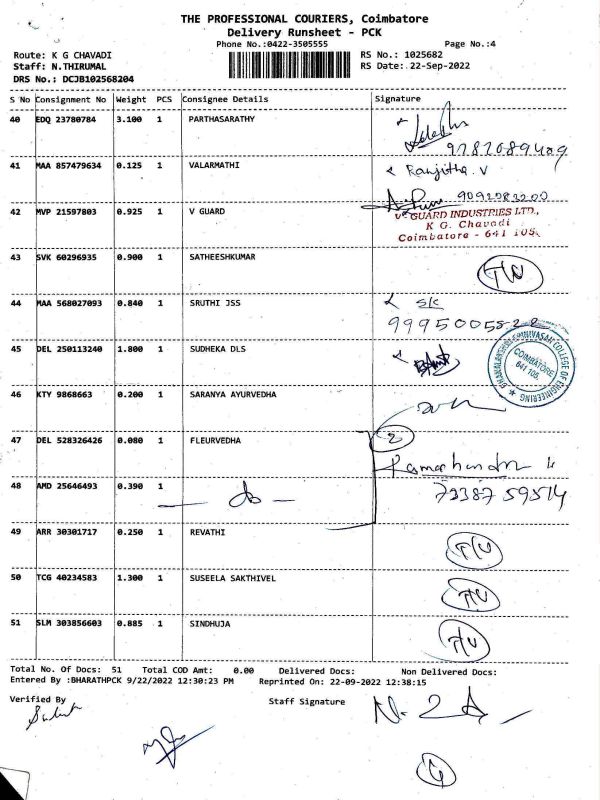 THE PROFESSIONAL COURIERS, Coimbatore
Delivery Runsheet - PCK
Phone No.:0422-3505555 Page No.:4
Route: K G CHAVADI RS No.: 1025682
Staff: N.THIRUMAL RS Date: 22-Sep-2022
DRS No.: DCJB102568204
S No Consignment No Weight PCS Consignee Details Signature
40 EDQ 23780784 3.100 1 PARTHASARATHY
41 MAA 857479634 0.125 1 VALARMATHI Ranjitha. V
42 MVP 21597803 0.925 1 V GUARD
V-GUARD INDUSTRIES LTD.,
K G. Chavadi
Coimbatore - 641 105.
43 SVK 60296935 0.900 1 SATHEESHKUMAR
44 MAA 568027093 0.840 1 SRUTHI JSS
45 DEL 250113240 1.800 1 SUDHEKA DLS
COIMBATORE
641 105.
46 KTY 9868663 0.200 1 SARANYA AYURVEDHA
47 DEL 528326426 0.080 1 FLEURVEDHA 2
48 AMD 25646493 0.390 1 — do —
73387 59514
49 ARR 30301717 0.250 1 REVATHI
50 TCG 40234583 1.300 1 SUSEELA SAKTHIVEL
51 SLM 303856603 0.885 1 SINDHUJA
Total No. Of Docs: 51 Total COD Amt: 0.00 Delivered Docs: Non Delivered Docs:
Entered By :BHARATHPCK 9/22/2022 12:30:23 PM Reprinted On: 22-09-2022 12:38:15
Verified By Staff Signature